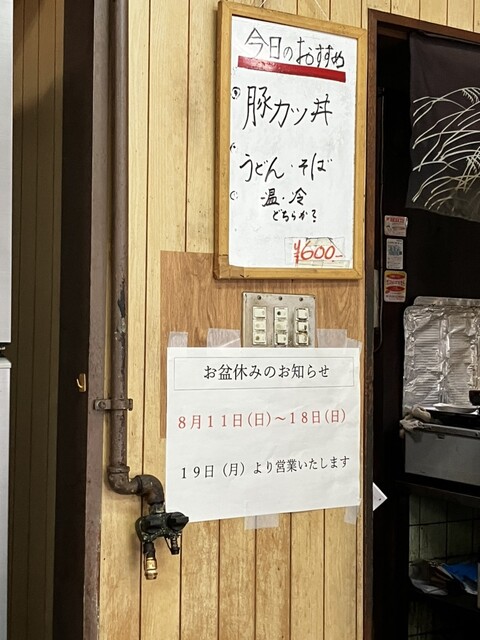 今日のおすすめ
豚カツ丼
うどん・そば
温・冷
どちらか
¥600-
お盆休みのお知らせ
8月11日(日)～18日(日)
19日(月)より営業いたします